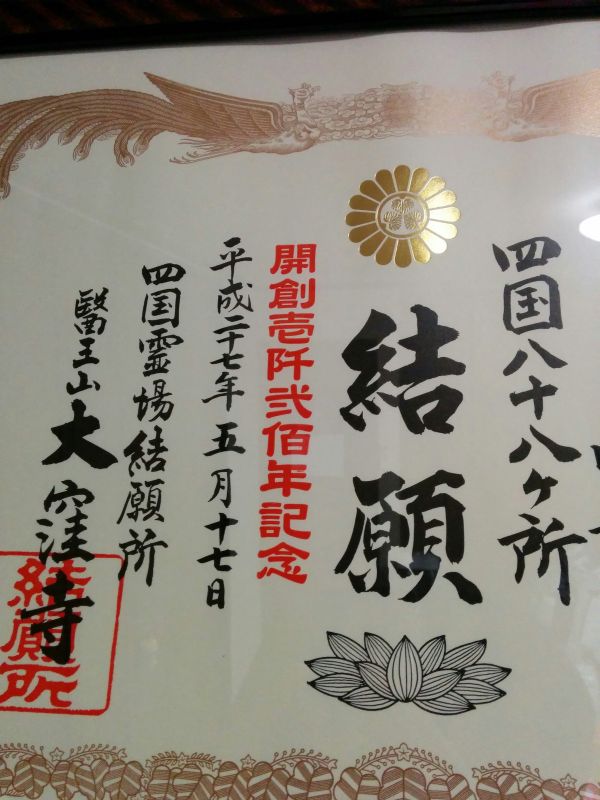 四国八十八ヶ所
結願
開創壱阡弐佰年記念
平成二十七年五月十七日
四国霊場結願所
醫王山大窪寺
結願所